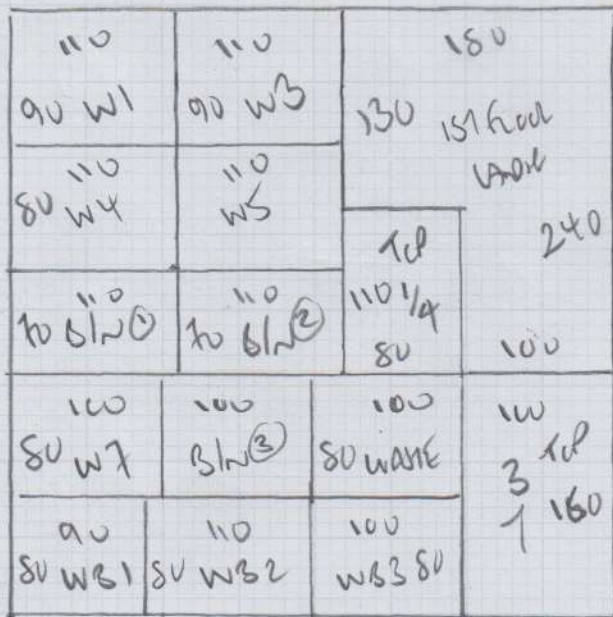 110
90 W1
110
90 W3
180
130 1ST FLOOR
240
110
80 W4
110
W5
TCP
110 1/4
80
100
110
70 BIN ①
110
70 BIN ②
100
80 W7
100
BIN ③
100
80 WASTE
100
TCP
3
1 160
90
80 WB1
110
80 WB2
100
WB3 80